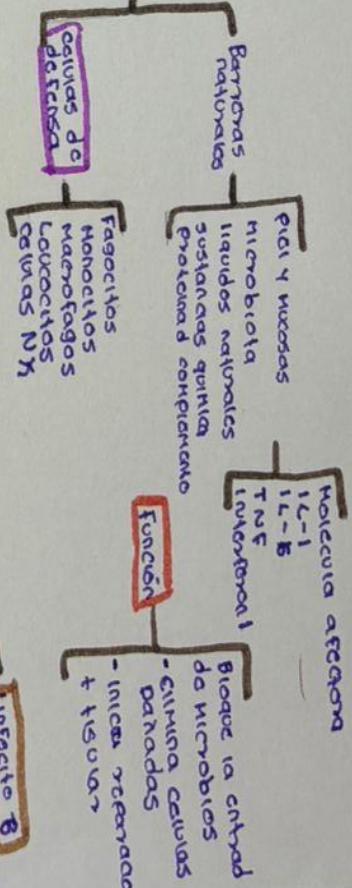 Barreras
naturales
piel y mucosas
Microbiota
liquidos naturales
sustancias quimica
proteinad complemento
celulas de
defensa
Fagocitos
Monocitos
Macrofagos
Leucocitos
celulas NK
Molecula afectora
IL-1
IL-6
TNF
Función
Bloque la entrad
de Microbios
- elimina celulas
dañadas
- inicia reparac
+ tisular